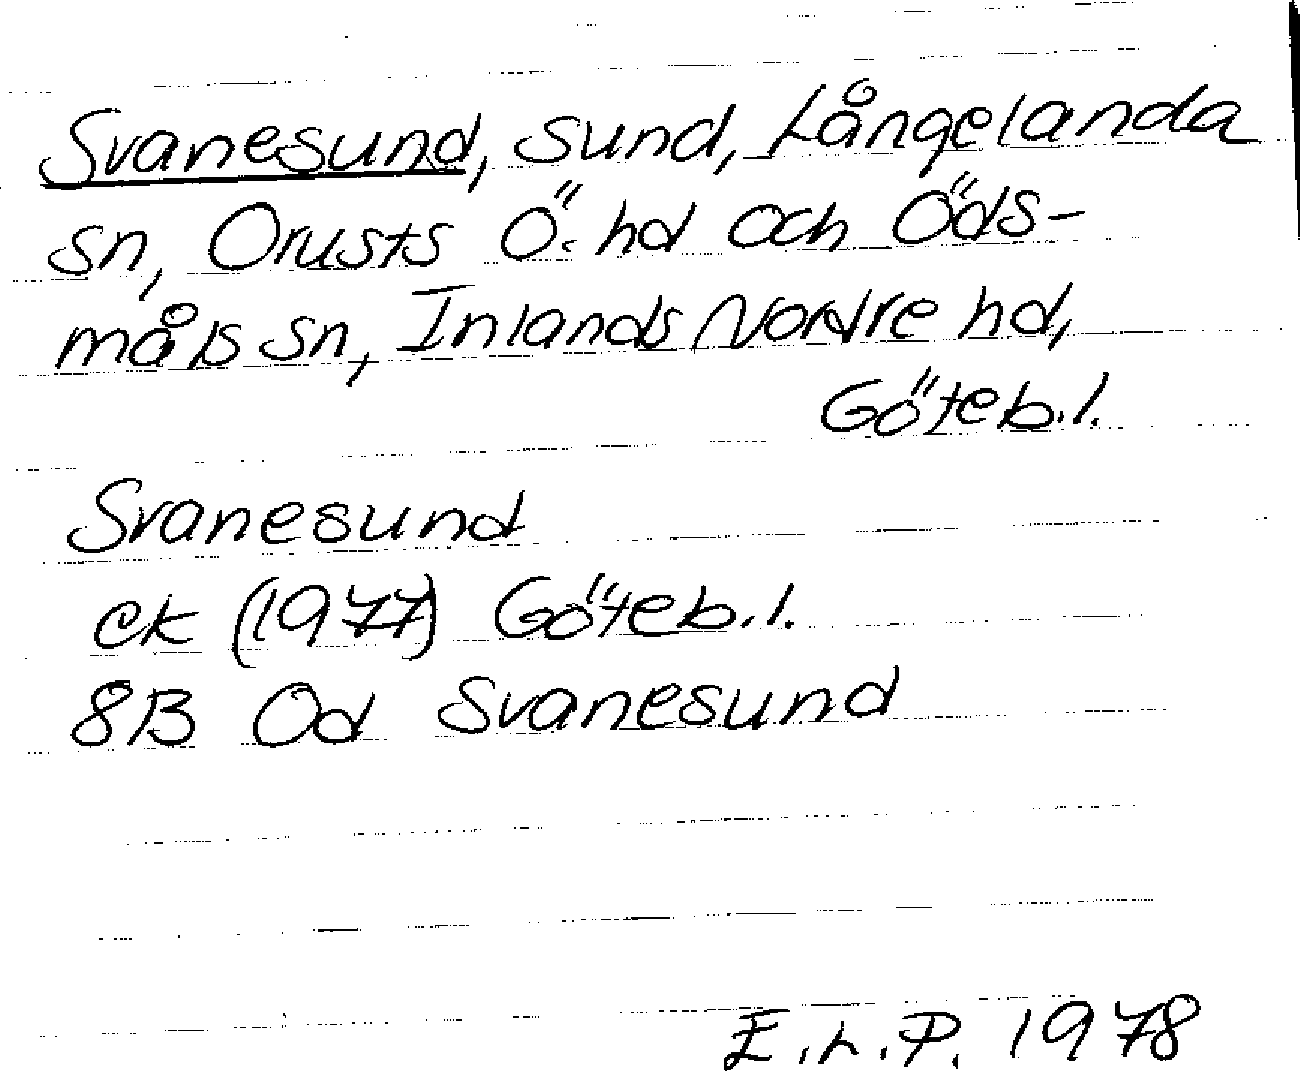 Svanesund, sund, Långelanda
sn, Orusts Ö. hd och Öds-
måls sn, Inlands Nordre hd,
Göteb.l.
Svanesund
ek (1977) Göteb.l.
8B Od Svanesund
E.L.P. 1978